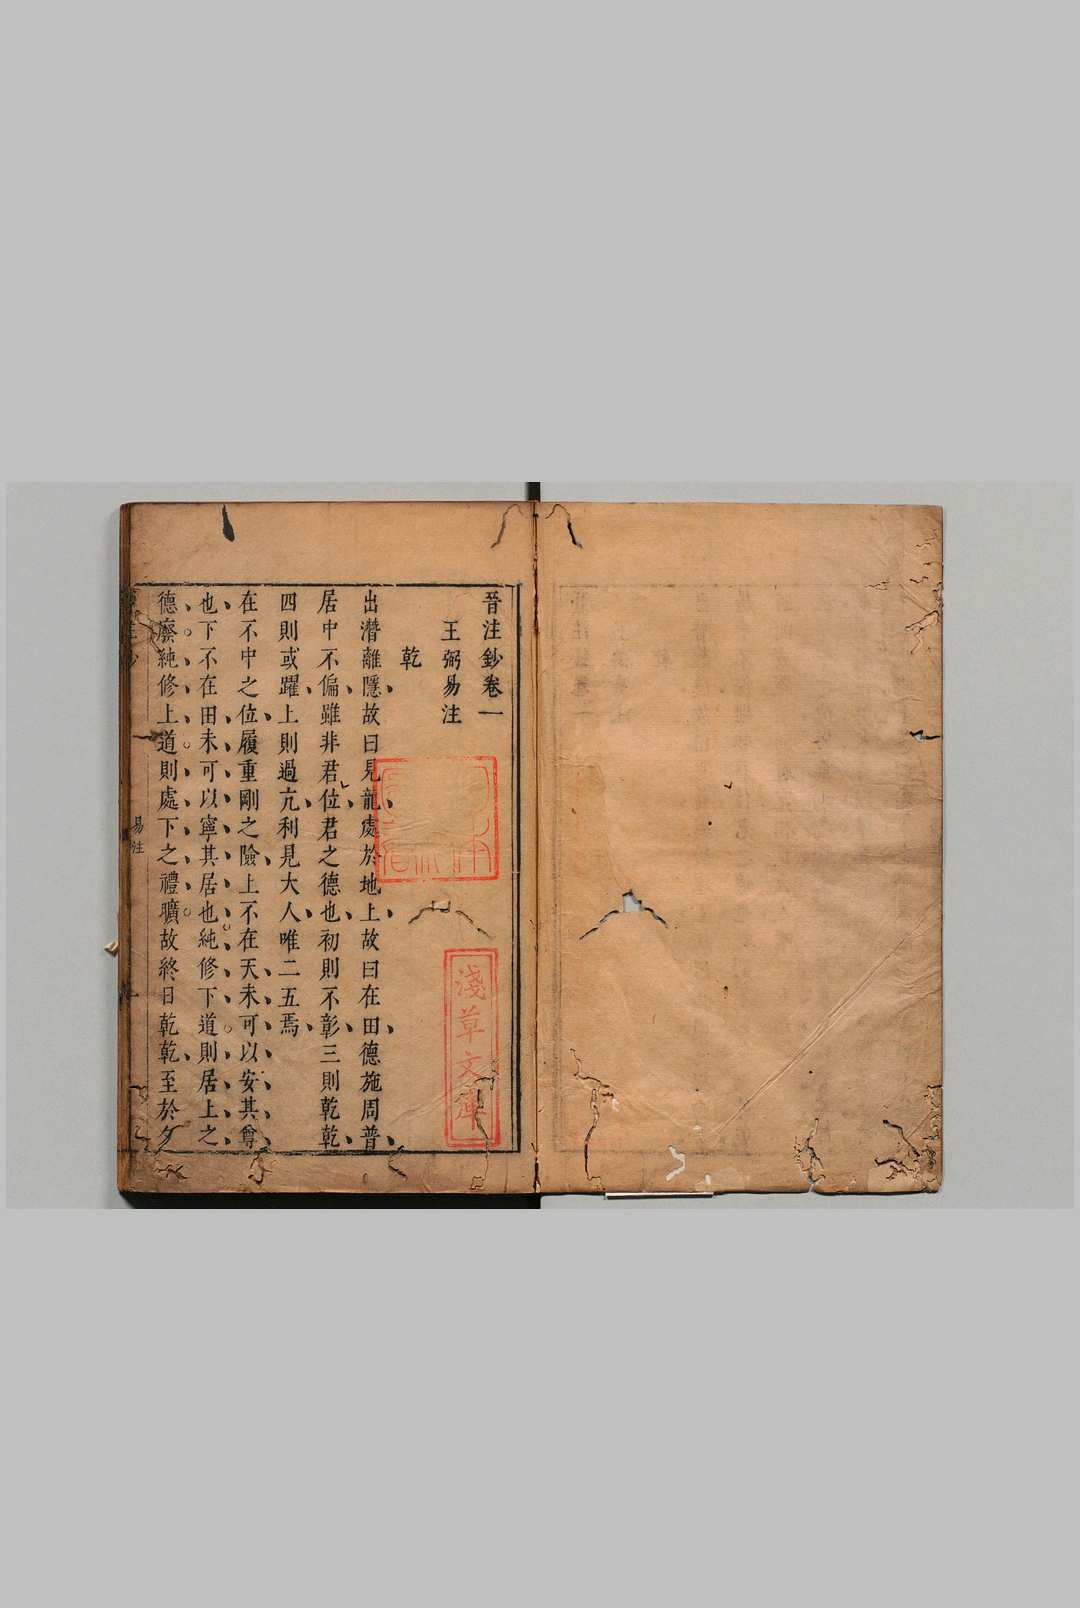 晉注鈔卷一
王弼易注
乾
出潛離隱故曰見龍處於地上故曰在田德施周普
居中不偏雖非君位君之德也初則不彰三則乾乾
四則或躍上則過亢利見大人唯二五焉
在不中之位履重剛之險上不在天未可以安其尊
也下不在田未可以寧其居也純修下道則居上之
德廢純修上道則處下之禮曠故終日乾乾至於夕
易注
一
淺草文庫